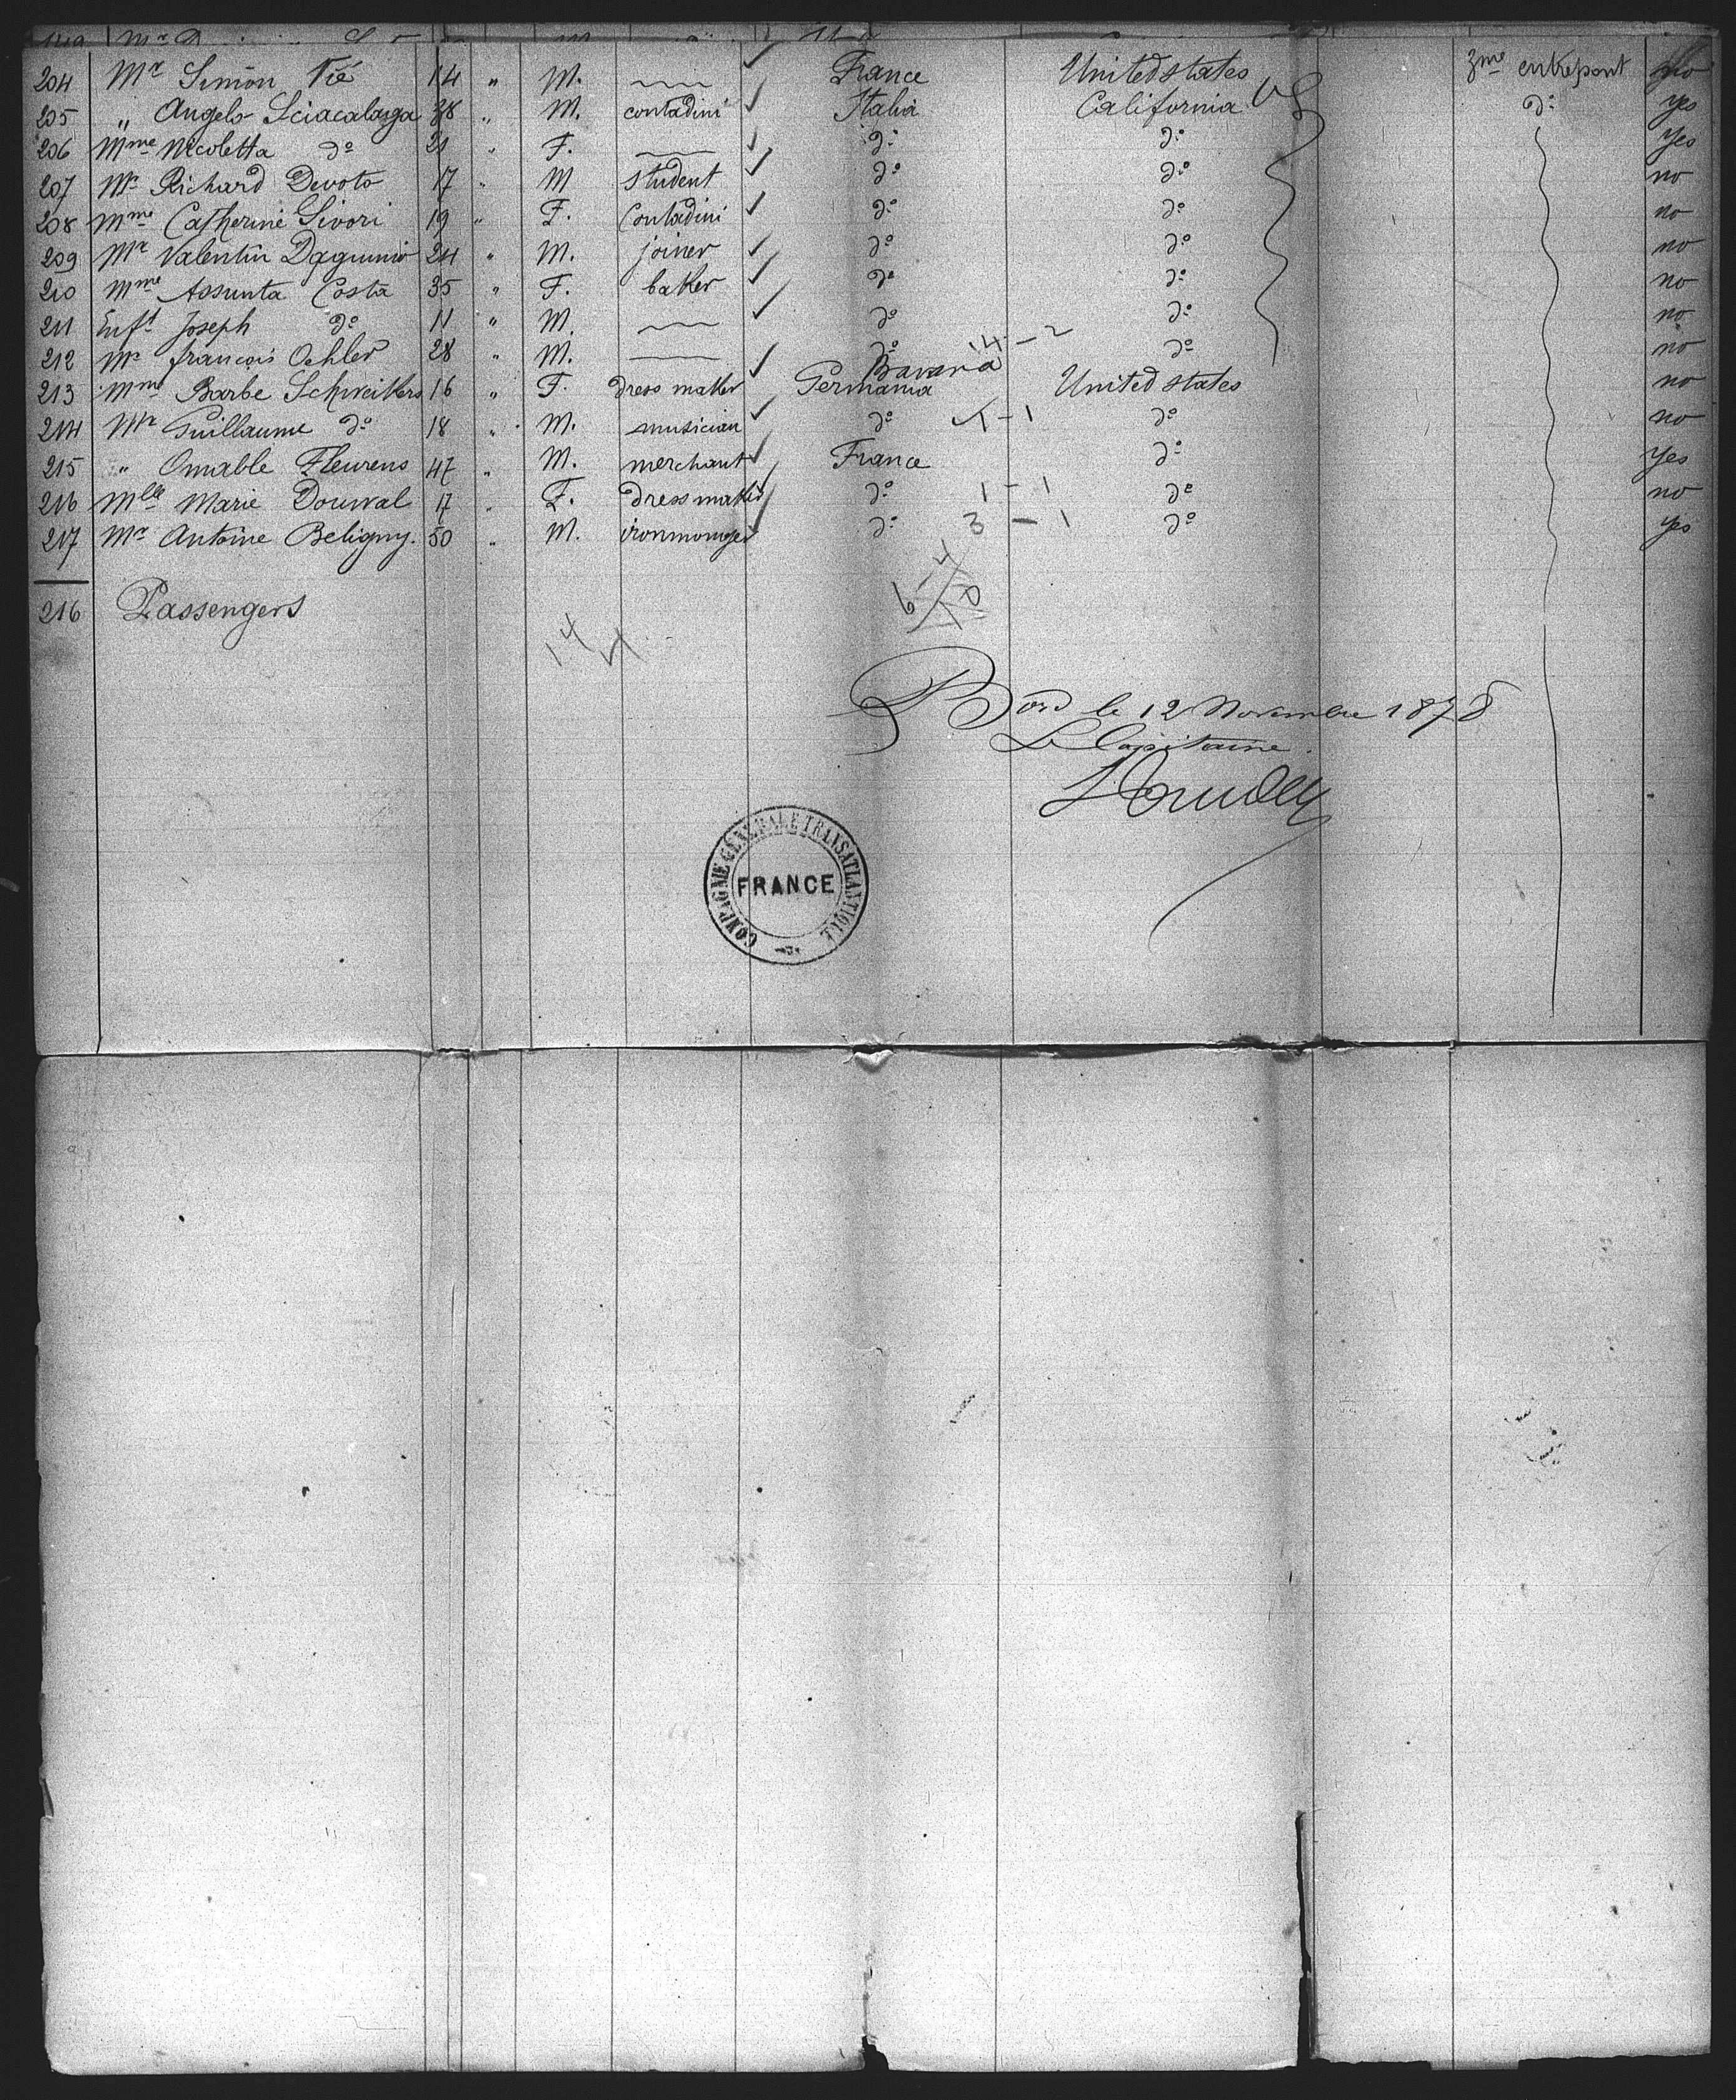 204 Mr Simon Vié 14 " M. France United States 3me entrepont no
205 " Angelo Sciacalaga 38 " M. contadini Italia California d° yes
206 Mme Nicoletta d° 21 " F. d° d° yes
207 Mr Richard Devoto 17 " M student d° d° no
208 Mme Catherine Sivori 19 " F. Contadini d° d° no
209 Mr Valentin 24 " M. joiner d° d° no
210 Mme Assunta Costa 35 " F. baker d° d° no
211 Enft Joseph d° 11 " M. d° d° no
14 - 2
212 Mr françois Oehler 28 " M. d° d° no
Bavaria
213 Mme Barbe Schweikers 16 " F. dress maker Germania United states no
214 Mr Guillaume d° 18 " M. musician d° 1 - 1 d° no
215 " Omable Fleurens 47 " M. merchant France d° yes
216 Mlle Marie Dourval 17 " F. dress maker d° 1 - 1 d° no
217 Mr Antoine Beligny. 50 " M. ironmonger d° 3 - 1 d° yes
6 - 4
10
216 Passengers
14
Bord le 12 Novembre 1878
Le Capitaine.
COMPAGNIE GÉNÉRALE TRANSATLANTIQUE
FRANCE